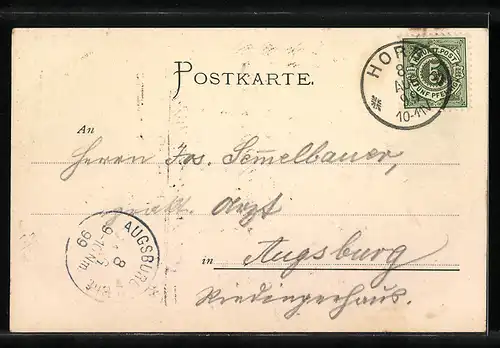 POSTKARTE.
HORB
8
AUG
99
10-11V
K.WÜRTT.POST
5
FÜNF PFENNIG
An
Herrn Jos. Semmelbauer,
prakt. Arzt
in Augsburg
Riedingerhaus.
AUGSBURG
8
9-10 Nm.
99